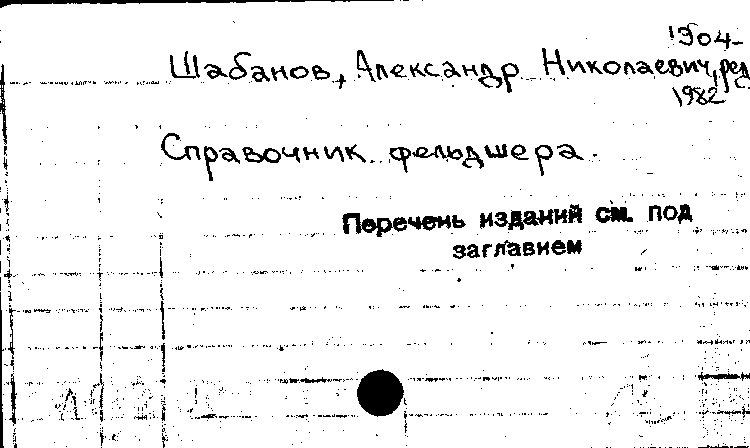 1904-
Шабанов, Александр Николаевич, ред
1982
Справочник фельдшера.
Перечень изданий см. под
заглавием